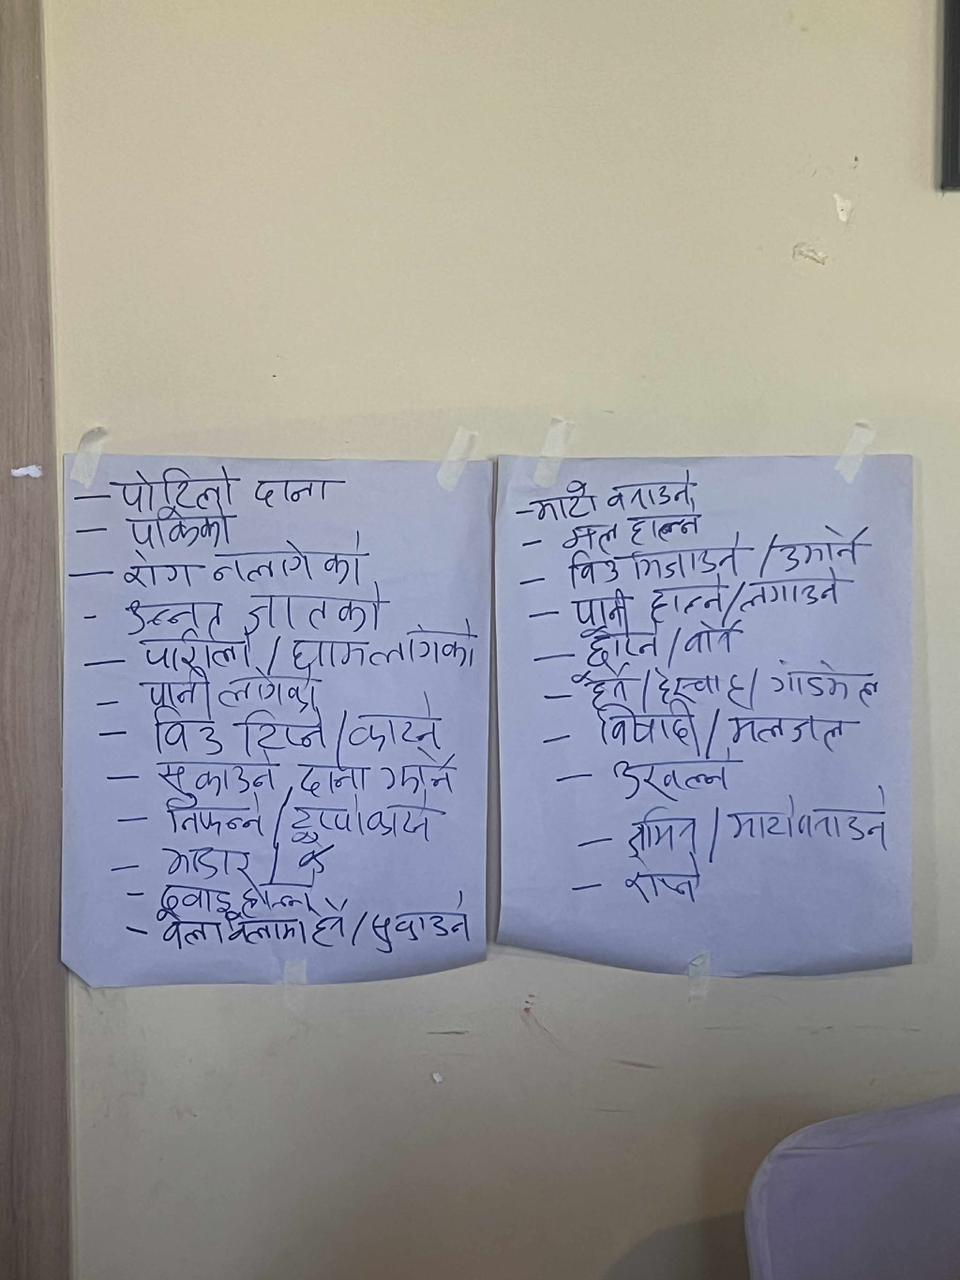 — पोटिलो दाना
— पाकेको
— रोग नलागेको
- उन्नत जातको
— पारिलो / घामलागेको
— पानी लागेको
- विउ टिप्ने / काट्ने
— सुकाउने दाना झार्ने
— निफन्ने / टुप्पोकाट्ने
— भाडार /
- दुवाइ हाल्ने
- वेला वेलामा हेर्ने / सुकाउने
- माटो बनाउने
- मल हाल्ने
- विउ भिजाउने / उमार्ने
- पानी हाल्ने / लगाउने
— छर्ने / वार्ने
- हेर्ने / हेरचाह / गोडमेल
- विषादी / मलजल
- उखल्ने
- / माटोबनाउने
- रोप्ने